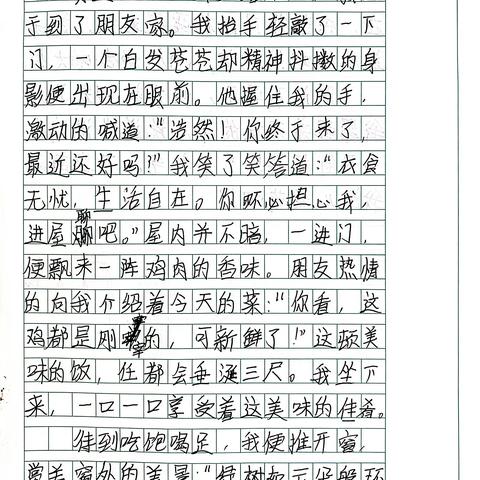 于到了朋友家。我抬手轻敲了一下
门，一个白发苍苍却精神抖擞的身
影便出现在眼前。他握住我的手，
激动的喊道："浩然！你终于来了，
最近还好吗？"我笑了笑答道："衣食
无忧，生活自在。你不必担心我，
进屋聊吧。"屋内并不暗，一进门，
便飘来一阵鸡肉的香味。朋友热情
的向我介绍着今天的菜："你看，这
鸡都是刚宰的，可新鲜了！"这顿美
味的饭，任都会垂涎三尺。我坐下
来，一口一口享受着这美味的佳肴。
待到吃饱喝足，我便推开窗，
赏美窗外的美景："绿树如